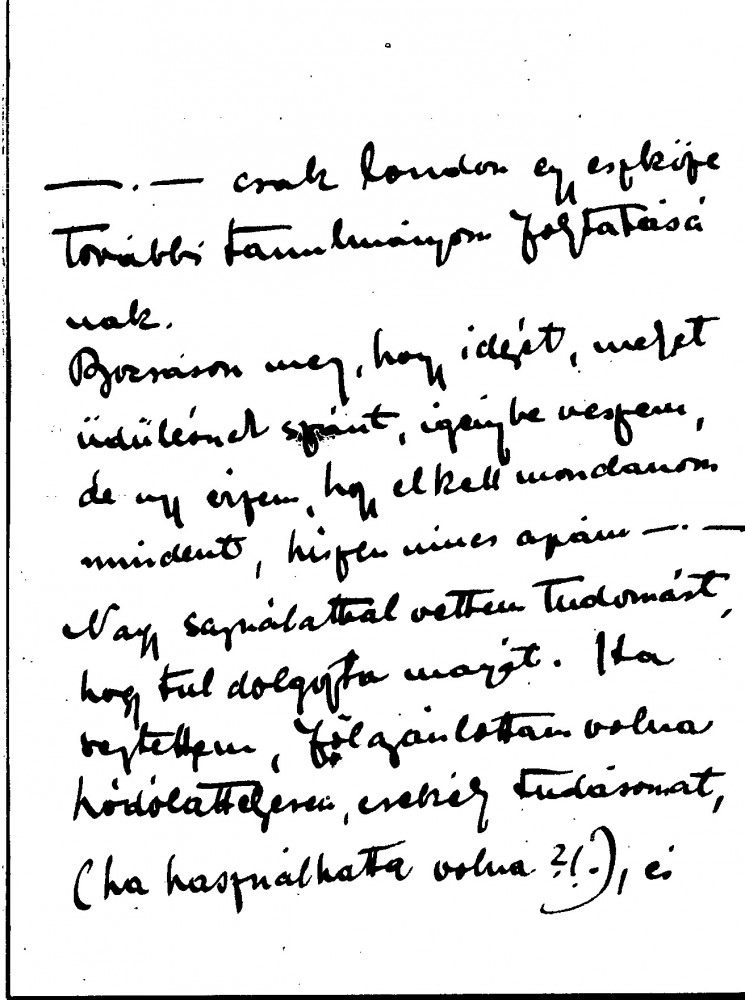 —.— csak London egy eszköze
további tanulmányom folytatásá
nak.
Bocsásson meg, hogy idejét, melyet
üdülésnek szánt, igénybe veszem,
de ugy érzem, hogy el kell mondanom
mindent, hiszen nincs apám —.—
Nagy sajnálattal vettem tudomást,
hogy tul dolgozta magát. Ha
sejtettem, fölajánlottam volna
hódólatteljesen, csekély tudásomat,
(ha használhatta volna ?!.), és